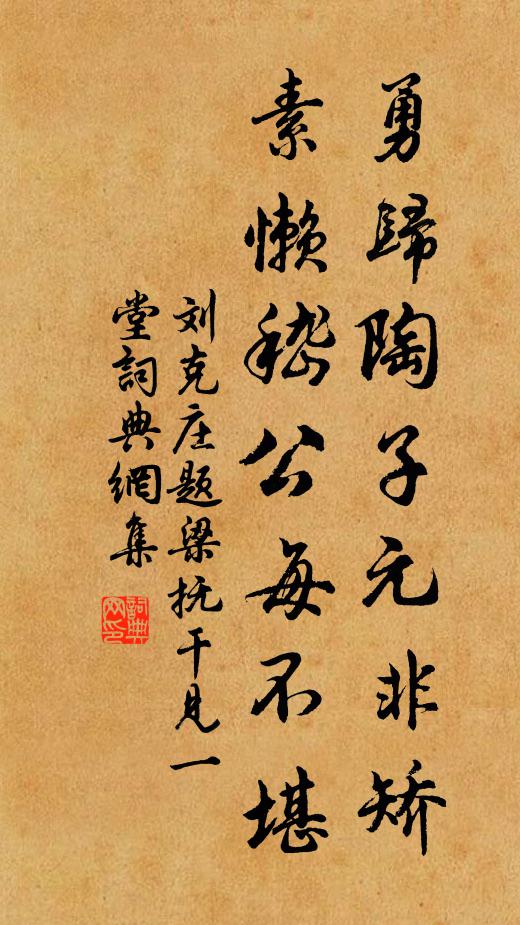 勇歸陶子元非矯
素懒嵇公每不堪
刘克庄题梁抚干见一
堂詞典網集
詞典網印